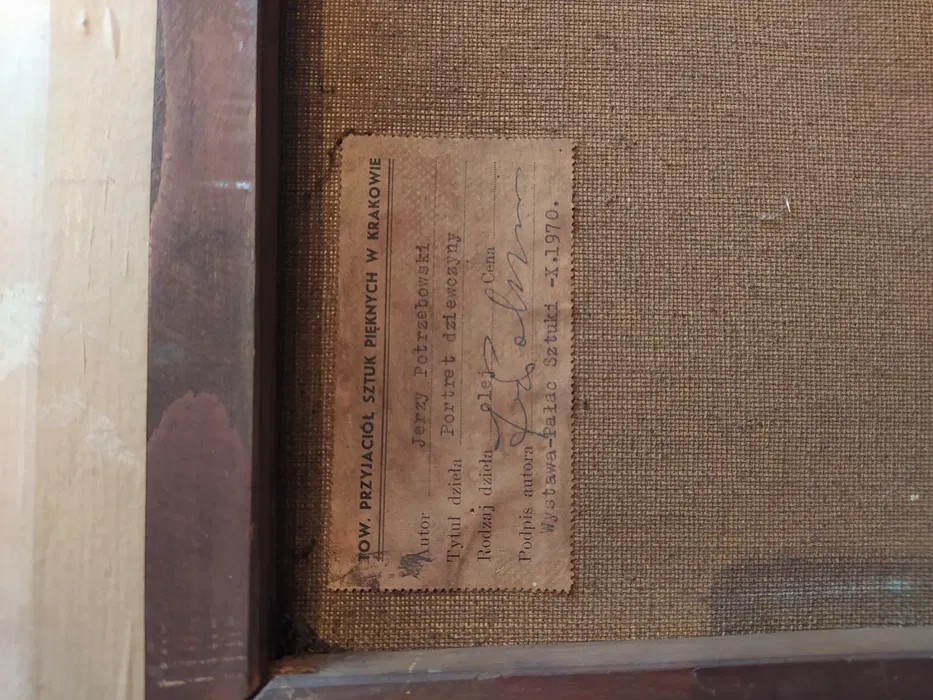 TOW. PRZYJACIÓŁ SZTUK PIĘKNYCH W KRAKOWIE
Autor Jerzy Potrzebowski
Tytuł dzieła Portret dziewczyny
Rodzaj dzieła olej Cena
Podpis autora
Wystawa-Pałac Sztuki -X.1970.